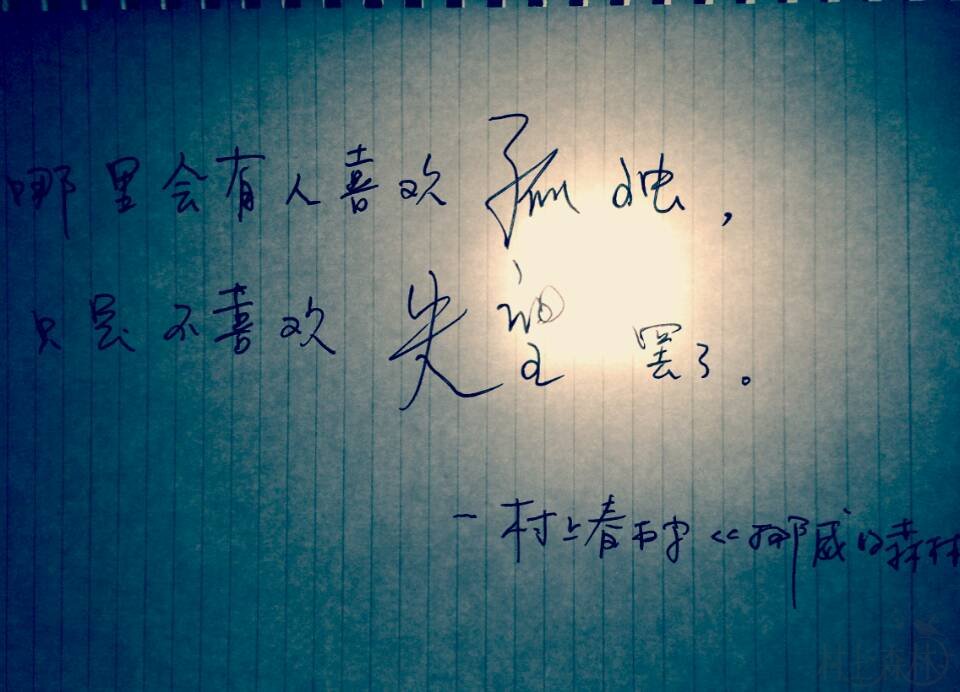 哪里会有人喜欢孤独，
只是不喜欢失望罢了。
－村上春树《挪威的森林
村上森林